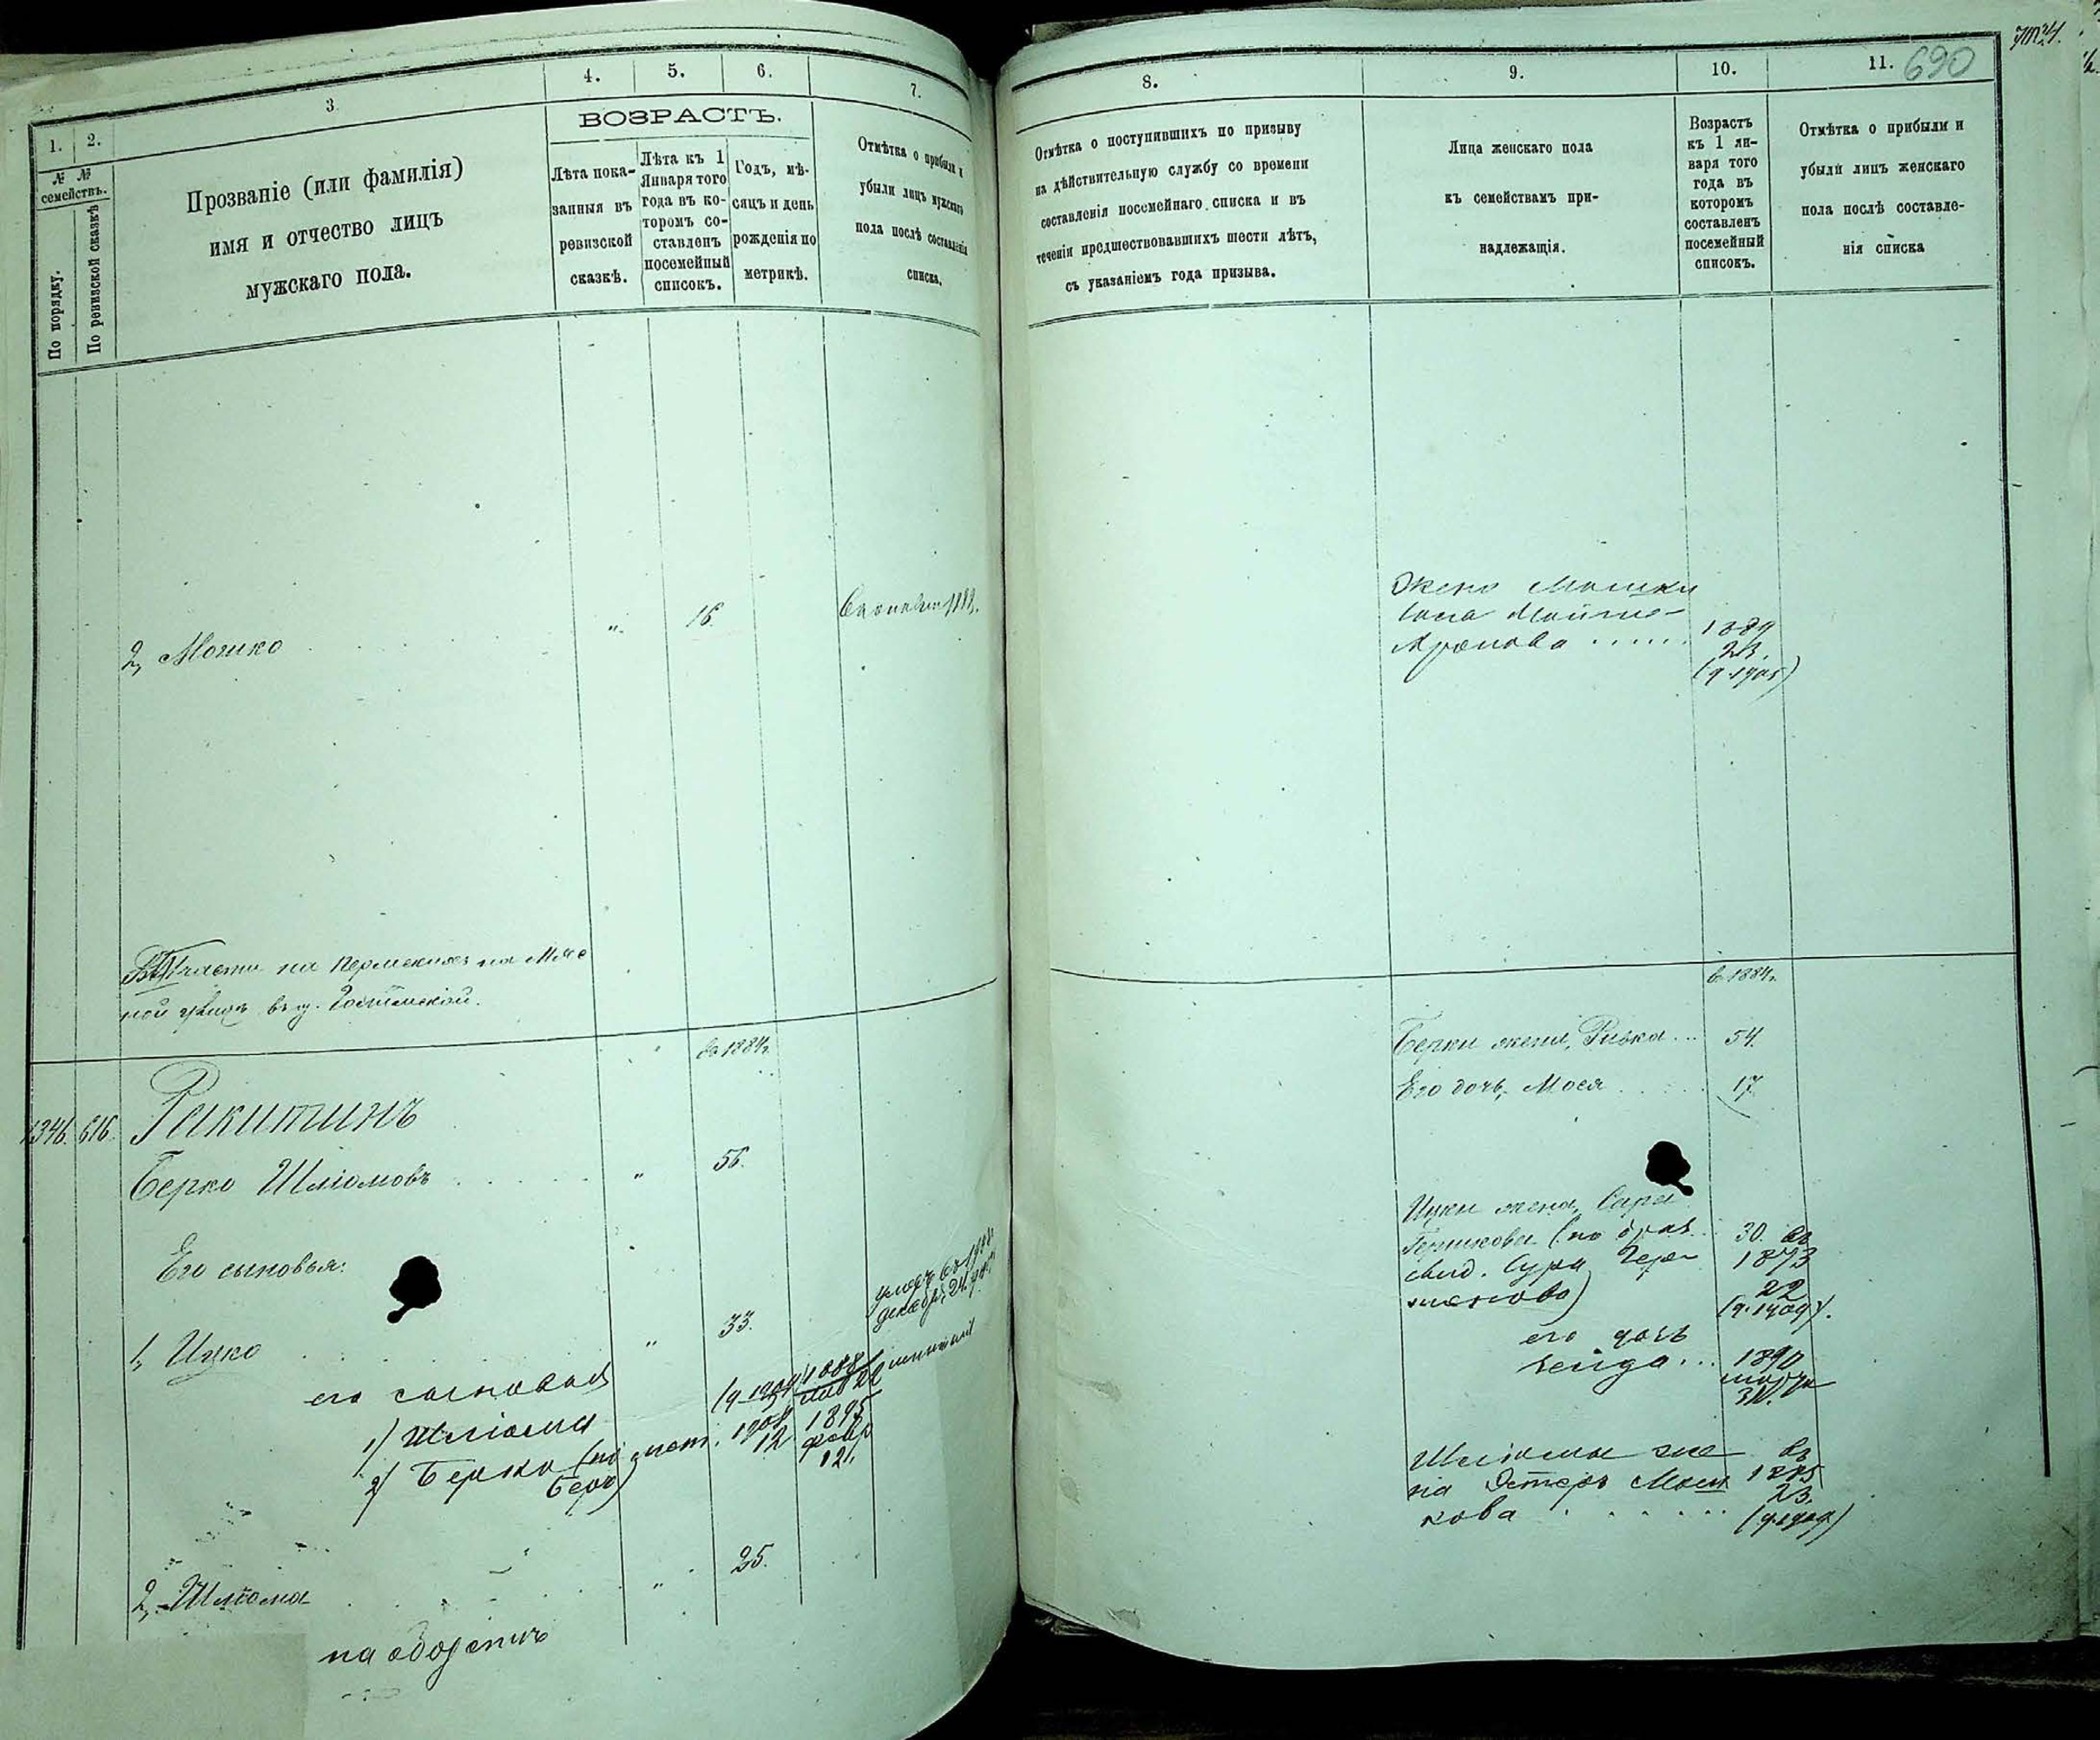 1.
2.
3.
4.
5.
6.
7.
№ № семействъ.
По порядку.
По ревизской сказкѣ
Прозваніе (или фамилія)
имя и отчество лицъ
мужскаго пола.
ВОЗРАСТЪ.
Лѣта пока-
занныя въ
ревизской
сказкѣ.
Лѣта къ 1
Января того
года въ ко-
торомъ со-
ставленъ
посемейный
списокъ.
Годъ, мѣ-
сяцъ и день
рожденія по
метрикѣ.
Отмѣтка о прибыли и
убыли лицъ мужскаго
пола послѣ составленія
списка.
2, Мошко . . . . . " 16.
на
въ
въ 1884 г.
1346. 616. Ракитинъ
Берко Шліомовъ . . . . . " 56.
Его сыновья:
1, Ицко . . . . . " 33.
умеръ въ
декабря 24
его сыновья
1) Шліома
2) Берко (по метр. 1908 1895
Беръ) 12 февр
12.
2, Шліома . . . . . " 25.
на оборотѣ
8.
9.
10.
11.
690
Отмѣтка о поступившихъ по призыву
на дѣйствительную службу со времени
составленія посемейнаго списка и въ
теченіи предшествовавшихъ шести лѣтъ,
съ указаніемъ года призыва.
Лица женскаго пола
къ семействамъ при-
надлежащія.
Возрастъ
къ 1 ян-
варя того
года въ
которомъ
составленъ
посемейный
списокъ.
Отмѣтка о прибыли и
убыли лицъ женскаго
пола послѣ составле-
нія списка
Жена Мошки
Аронова . . . . . 1889
23.
въ 1884 г.
Берки жена, Ривка . . . 54.
Его дочь, Мося . . . . . 17.
Ицки жена, Сара
Гершкова (по брач. 30. въ
свид. Сура 1873
22
его дочь
1890
марта
31.
Шліомы же- въ
на Эстеръ Мош
кова . . . . . . 23.